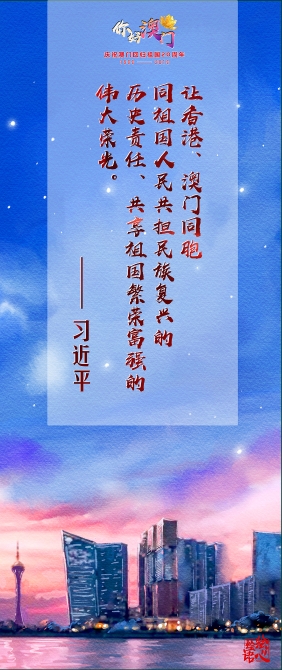 你好澳门
庆祝澳门回归祖国20周年
1999 — 2019
让香港、澳门同胞
同祖国人民共担民族复兴的
历史责任、共享祖国繁荣富强的
伟大荣光。
——习近平